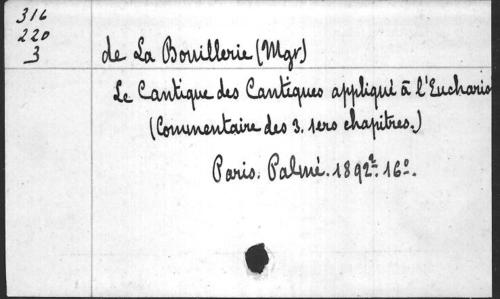 316
220
3
de La Bouillerie (Mgr)
Le Cantique des Cantiques appliqué à l'Eucharis
(Commentaire des 3. 1ers chapitres.)
Paris. Palmé. 1892². 16º.